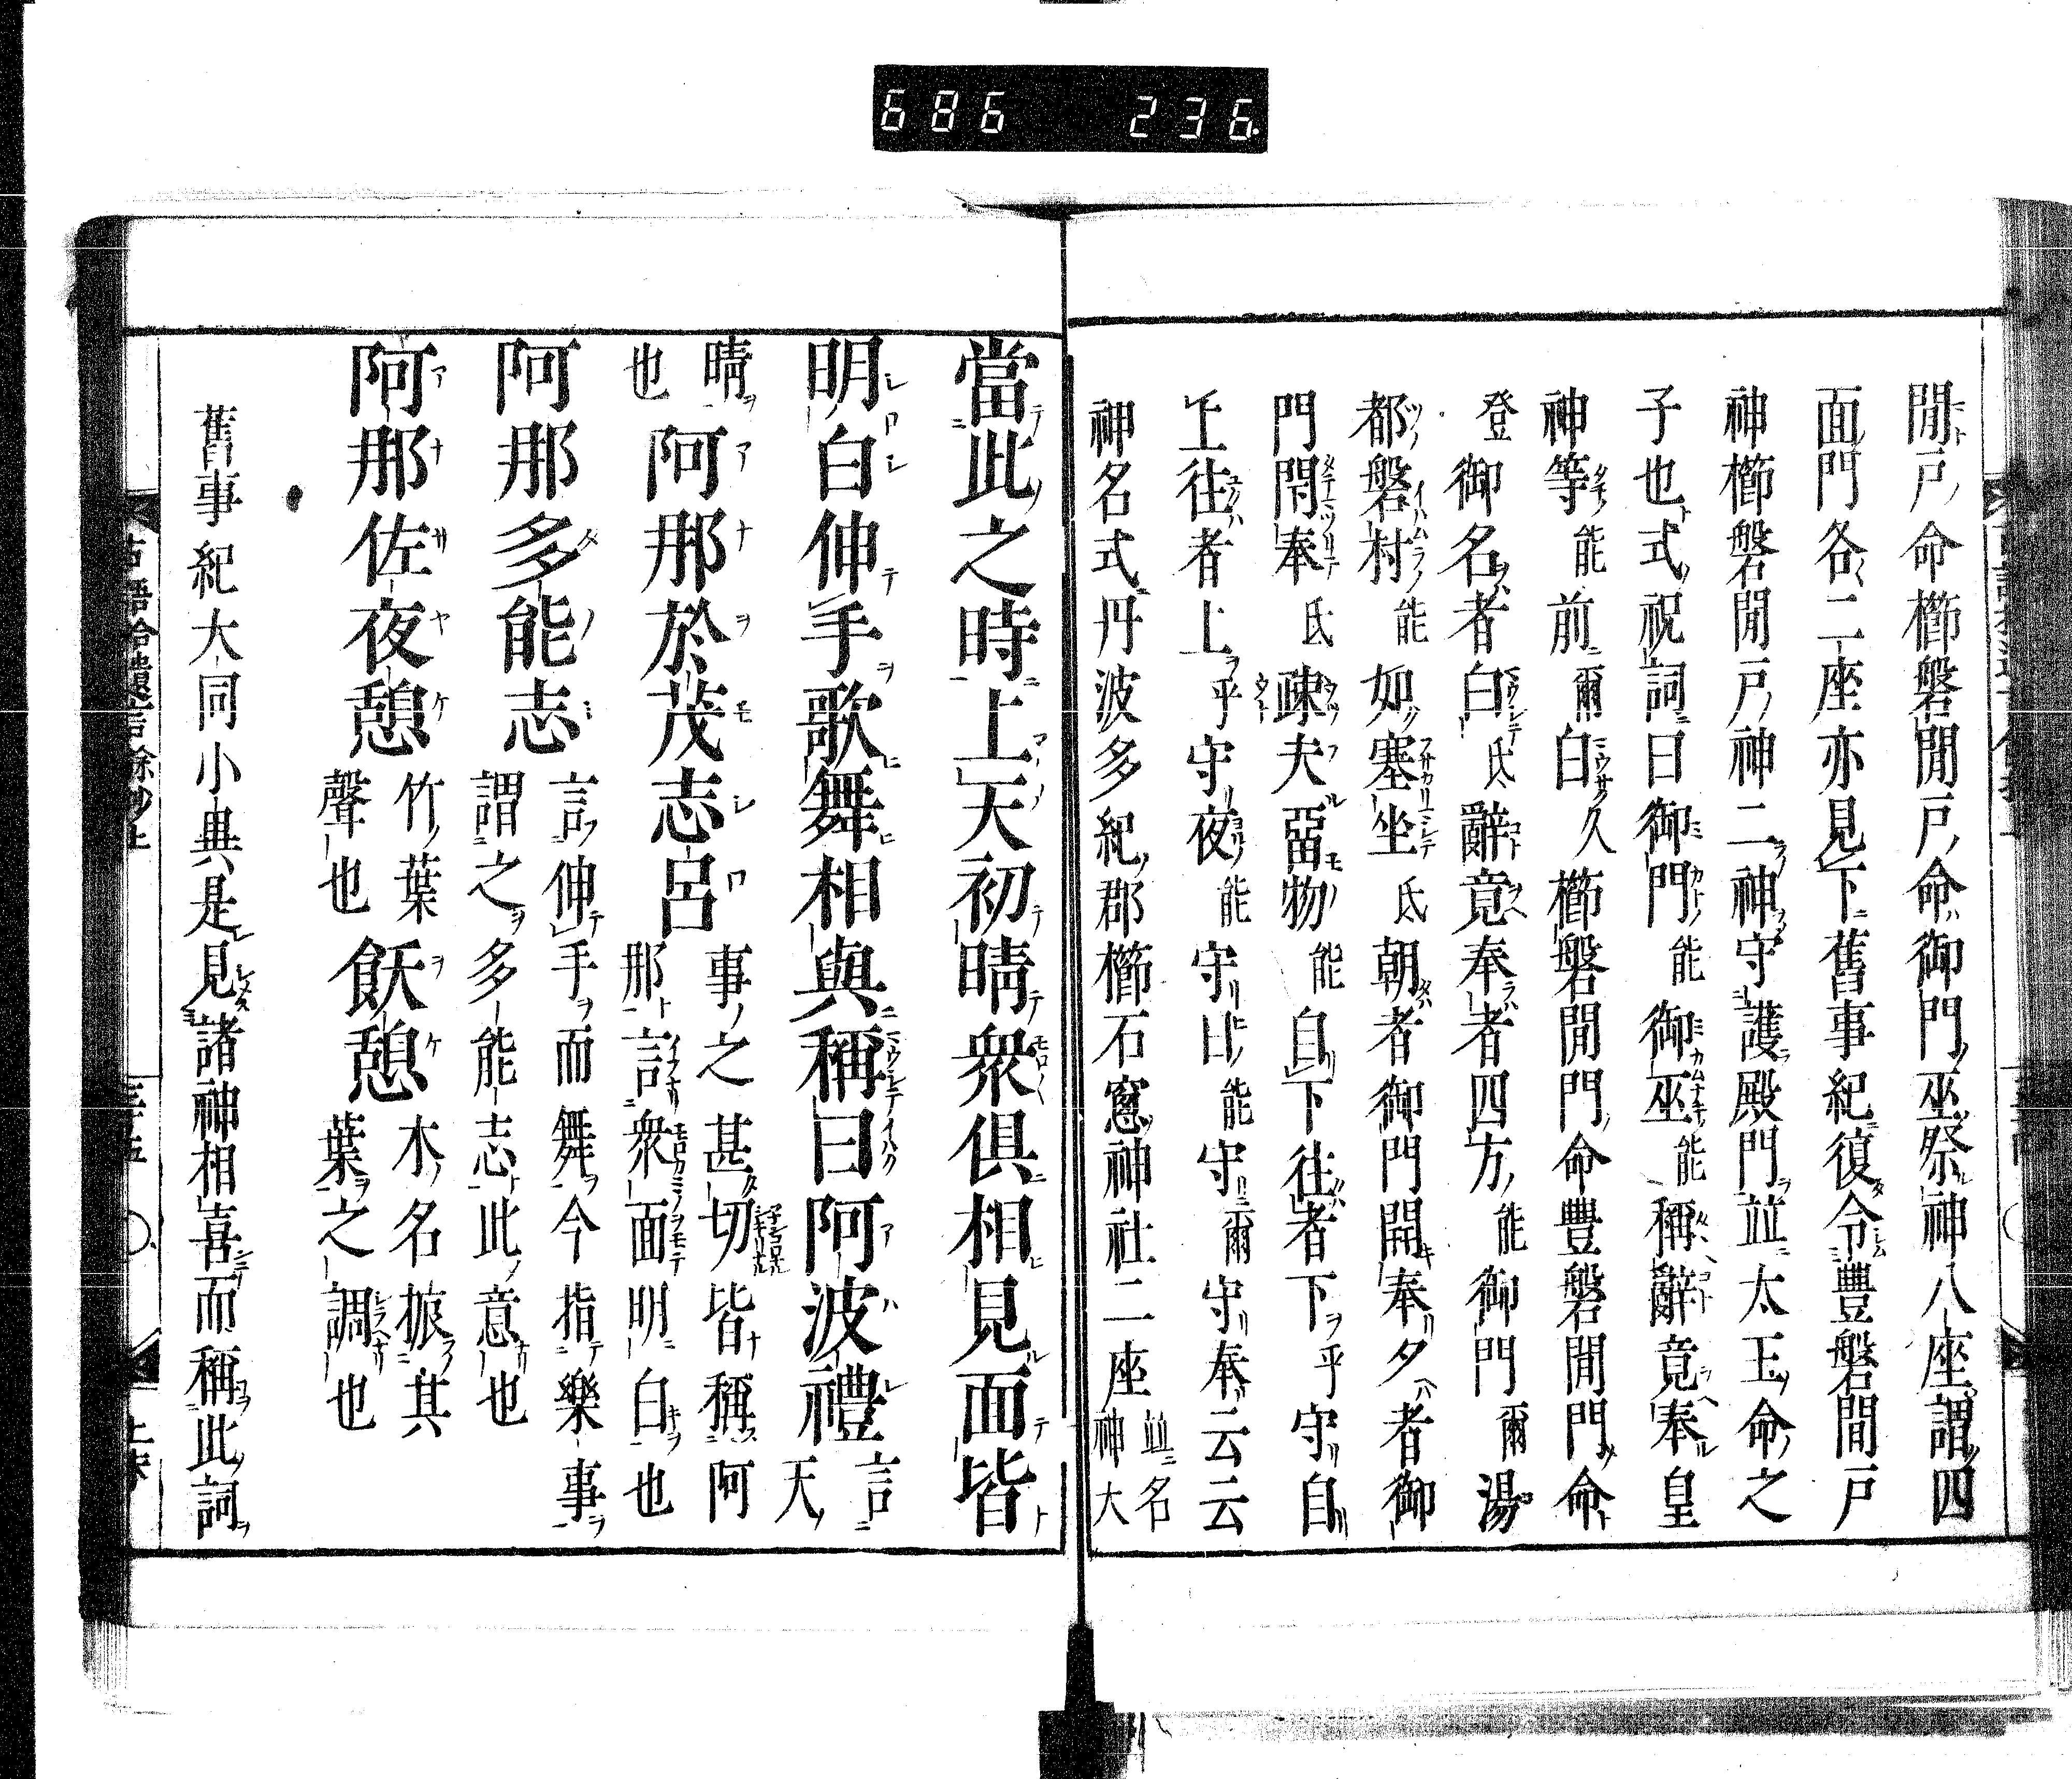 686 236
間戸命櫛磐間戸命御門巫祭神八座謂四
面門各二座亦見下舊事紀復令豐磐間戸
神櫛磐間戸神二神守護殿門並太玉命之
子也式祝詞曰御門能御巫能稱辭竟奉皇
神等能前爾白久櫛磐間門命豐磐間門命
登御名者白氐辭竟奉者四方能御門爾湯
都磐村能如塞坐氐朝者御門開奉夕者御
門閇奉氐疎夫留物能自下往者下乎守自
上往者上乎守夜能守日能守爾守奉云云
神名式丹波多紀郡櫛石窓神社二座並名神大
當此之時上天初晴衆倶相見面皆
明白伸手歌舞相與稱曰阿波禮言天
晴也阿那於茂志呂事之甚切皆稱阿那言衆面明白也
阿那多能志言伸手而舞今指樂事謂之多能志此意也
阿那佐夜憩竹葉聲也飫憩木名振其葉之調也
舊事紀大同小異是見諸神相喜而稱此詞
古語拾遺言餘抄上